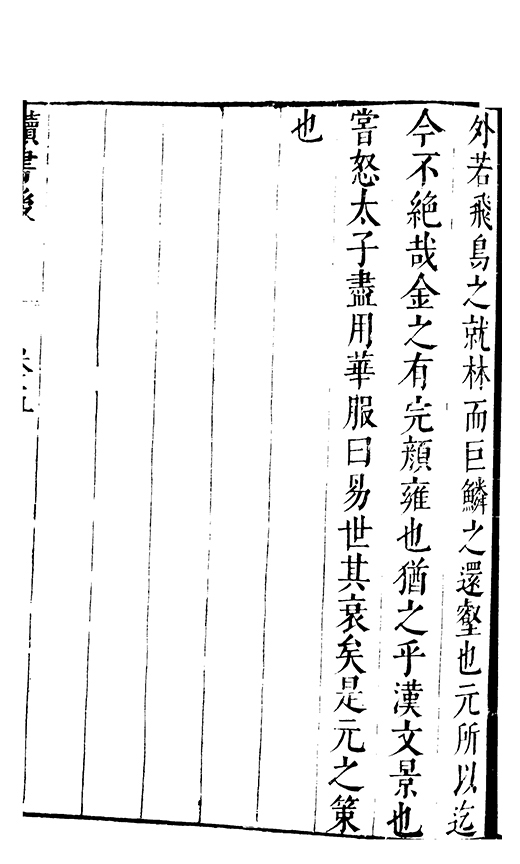 外若飛鳥之就林而巨鱗之還壑也元所以迄
今不絶哉金之有完顔雍也猶之乎漢文景也
嘗怒太子盡用華服曰易世其衰矣是元之策
也
讀書後
卷之五